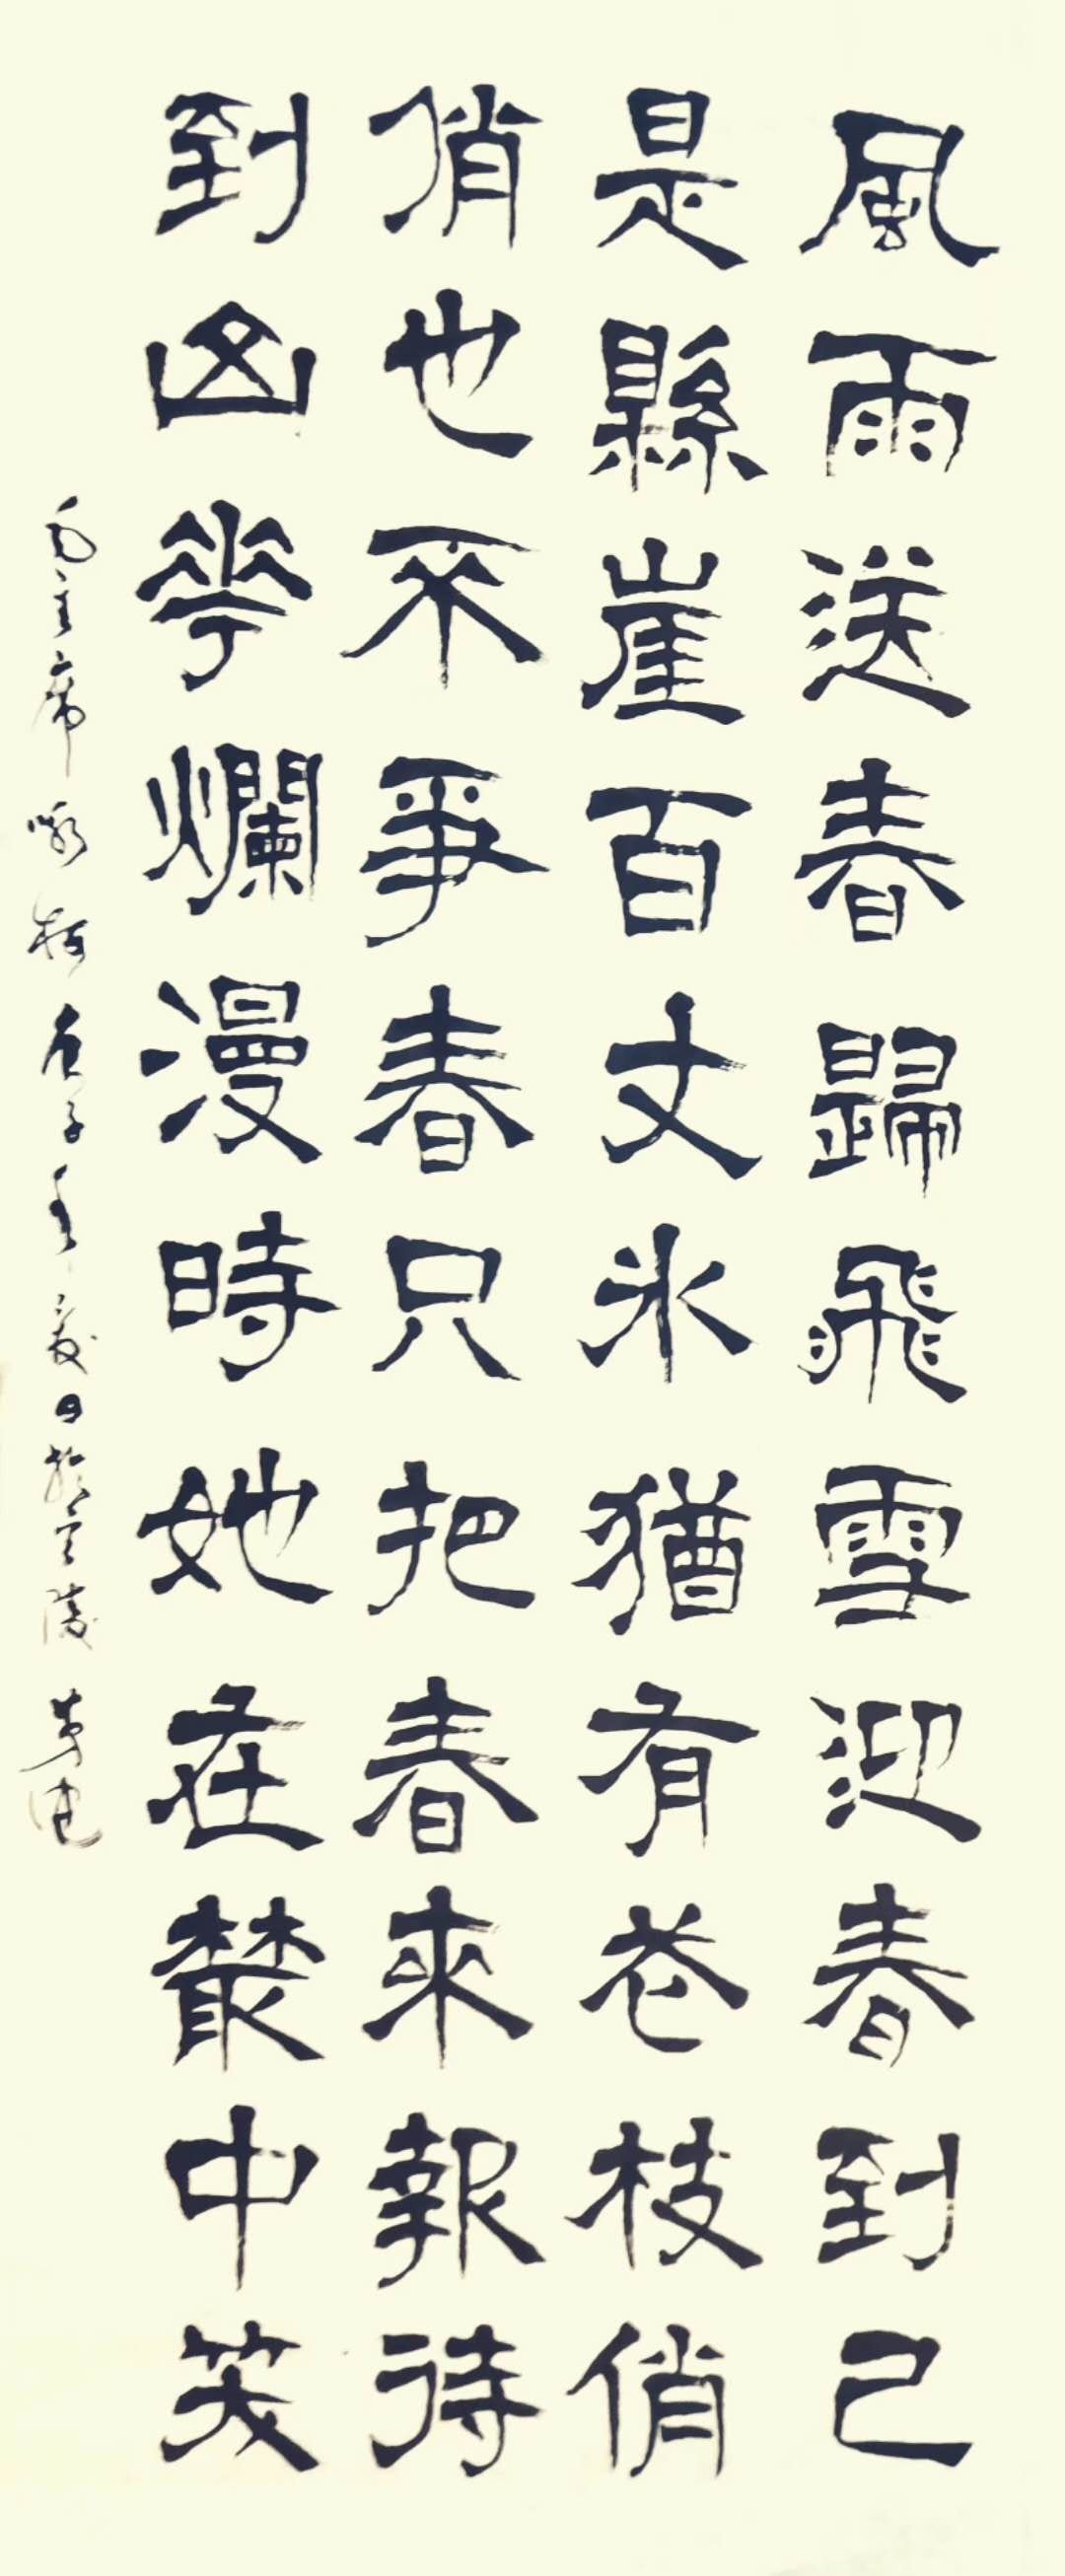 風雨送春歸飛雪迎春到已
是縣崖百丈冰猶有花枝俏
俏也不爭春只把春來報待
到山華爛漫時她在叢中笑
毛主席咏梅庚子年夏日於兰陵